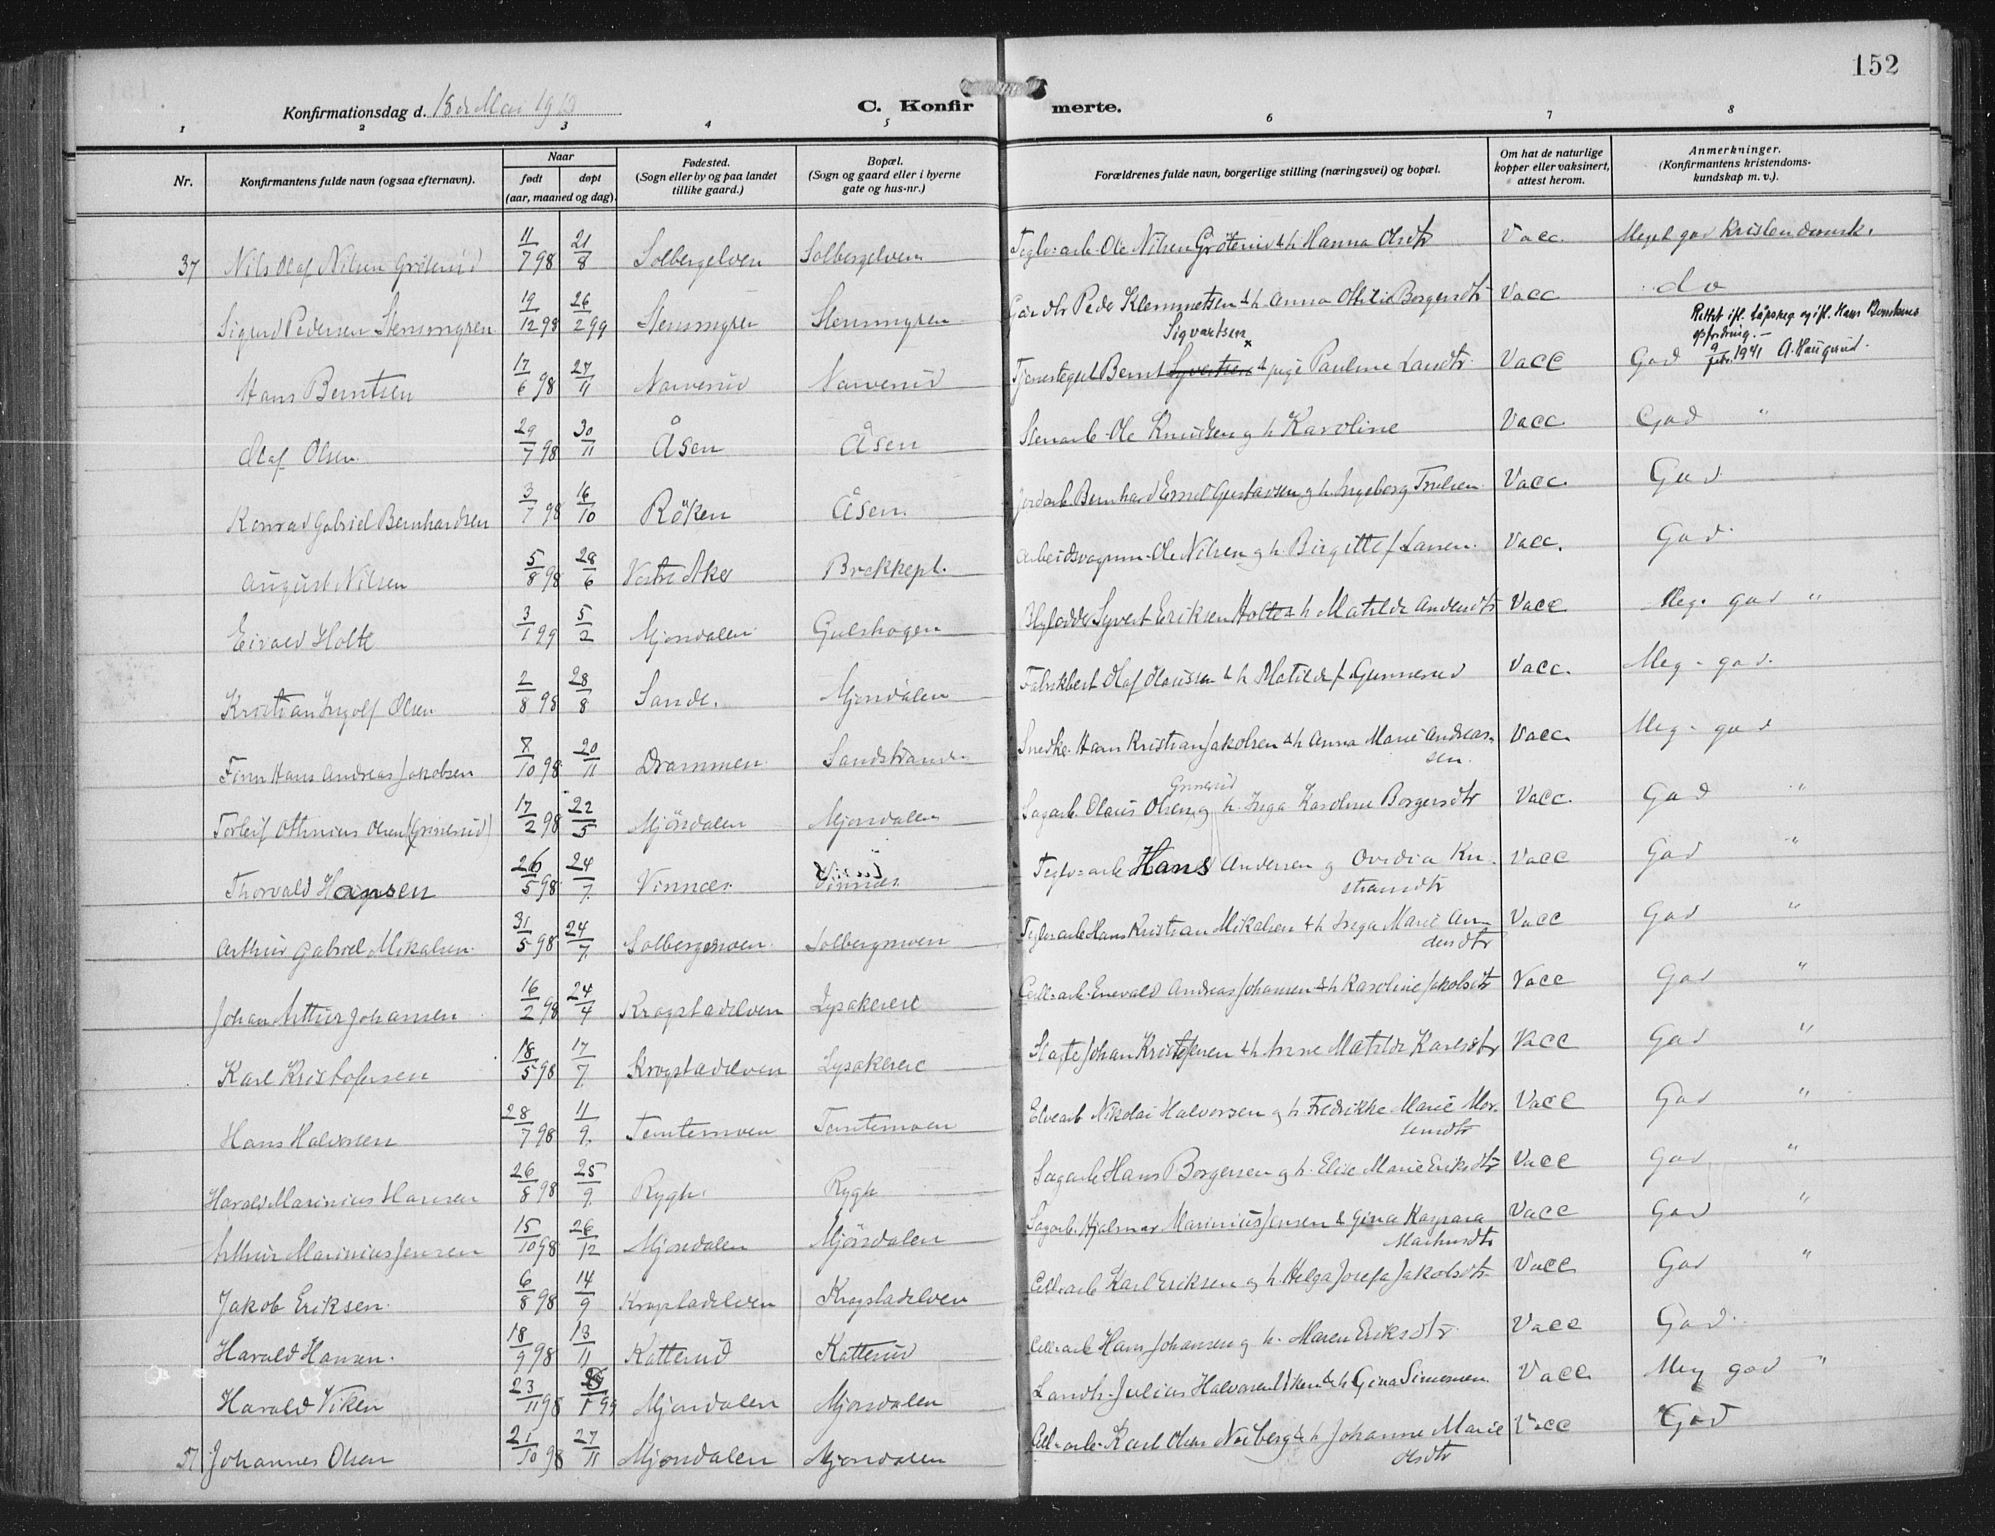 152
Konfirmationsdag d. 18de Mai 1913
C. Konfirmerte.
1 2 3 4 5 6 7 8
Nr.
Konfirmantens fulde navn (ogsaa efternavn).
Naar
født
døpt
(aar, maaned og dag).
Fødested.
(Sogn eller by og paa landet
tillike gaard.)
Bopæl.
(Sogn og gaard eller i byerne
gate og hus-nr.)
Forældrenes fulde navn, borgerlige stilling (næringsvei) og bopæl.
Om hat de naturlige
kopper eller vaksinert,
attest herom.
Anmerkninger.
(Konfirmantens kristendoms-
kundskap m. v.).
37 Nils Olaf Nilsen Gröterud 11/7 98 21/8 Solbergelven Solbergelven Teglv=arb. Ole Nilsen Gröterud & h. Hanna Olsdtr Vacc. Meget god kristendomsk.
Sigurd Pedersen Stensmyren 19/12 98 26/2 99 Stensmyren Stensmyren Gårdbr Peder Klemmetsen & h. Anna Othilie Borgersdtr Vacc do
Sigvartsen x
Rettet ifl. dåpsreg og ifl. Hans Berntsens
opfordring.-
Hans Berntsen 17/6 98 27/11 Narverud Narverud Tjenestegut Bernt Syvertsen & pige Pauline Larsdtr. Vacc God 9/febr. 1941 A. Haugerud.
Olaf Olsen 29/7 98 30/11 Åsen Åsen Stenarb. Ole Knudsen og h Karoline Vacc. God "
Konrad Gabriel Bernhardsen 3/7 98 16/10 Röken Åsen Jordarb. Bernhard Emil Gustavsen og h. Ingeborg Trulsen. Vacc. God
August Nilsen 5/8 98 28/6 Vestre Aker Brekkepl. Arbeidsvogn- Ole Nilsen og h. Birgitte f. Larsen. Vacc. God
Eivald Holte 3/1 99 5/2 Mjöndalen Gulskogen Syvert Eriksen Holte & h Matilde Andersdtr Vacc Meg. god "
Kristian Ingolf Olsen 2/8 98 28/8 Sande. Mjöndalen Fabrikbest Olaf Olaussen & h Matilde f. Gunnerud Vacc. Meg. god.
Finn Hans Andreas Jakobsen 8/10 98 20/11 Drammen Sandstranden Snedke. Hans Kristian Jakobsen & h Anna Marie Andreas-
sen. Vacc. Meg. god
Grinerud
Torleif Othinius Olsen (Grinerud) 17/2 98 22/5 Mjöndalen Mjöndalen Sagarb. Olaus Olsen og h. Inga Karoline Borgersdtr Vacc. God "
Thorvald Hansen 26/5 98 24/7. Vinnæs. Vinnæs. Teglv=arb Hans Andersen og Ovidia Kri-
stiansdtr Vacc God "
Arthur Gabriel Mikalsen. 31/5 98 24/7. Solbergmoen. Solbergmoen Teglv=arb Hans Kristian Mikalsen & h. Inga Marie An-
dersdtr Vacc God "
Johan Arthur Johansen 16/2 98 24/4 Krogstadelven Lysakerere Cell=arb. Enevald Andreas Johansen & h Karoline Jakobsdtr Vacc God "
Karl Kristofersen 18/5 98 17/7. Krogstadelven Lysakerere Slagte Johan Kristofersen & h. Anne Matilde Karlsdtr Vacc God "
Hans Halvorsen 28/7 98 11/9. Temtemoen Temtemoen Elvearb Nikolai Halvorsen og h. Fredrikke Marie Mor-
tensdtr Vacc God "
Harald Marinius Hansen 26/8 98 25/9. Rygh. Rygh Sagarb Hans Borgersen og h. Elise Marie Eriksdtr Vacc God "
Arthur Marinius Jensen 15/10 98 26/12 Mjöndalen Mjöndalen Sagarb. Hjalmar Marinius Jensen & Gina Kaspara
Markusdtr Vacc God "
Jakob Eriksen 6/8 98 14/9 Krogstadelven Krogstadelven Cell=arb Karl Eriksen og h. Helga Josefa Jakobsdtr. Vacc God "
Harald Hansen. 18/9 98 13/11 Katterud Katterud Cell=arb Hans Johansen og h. Maren Eriksdtr. Vacc God.
Harald Viken 23/11 98 /1 99 Mjöndalen Mjöndalen Landh. Julius Halvorsen Viken & h Gina Simonsen. Vacc Meg god "
57 Johannes Olsen 21/10 98 27/11 Mjöndalen Mjöndalen Cell=arb. Karl Olsen Norberg & h Johanne Marie
Olsdtr Vacc God